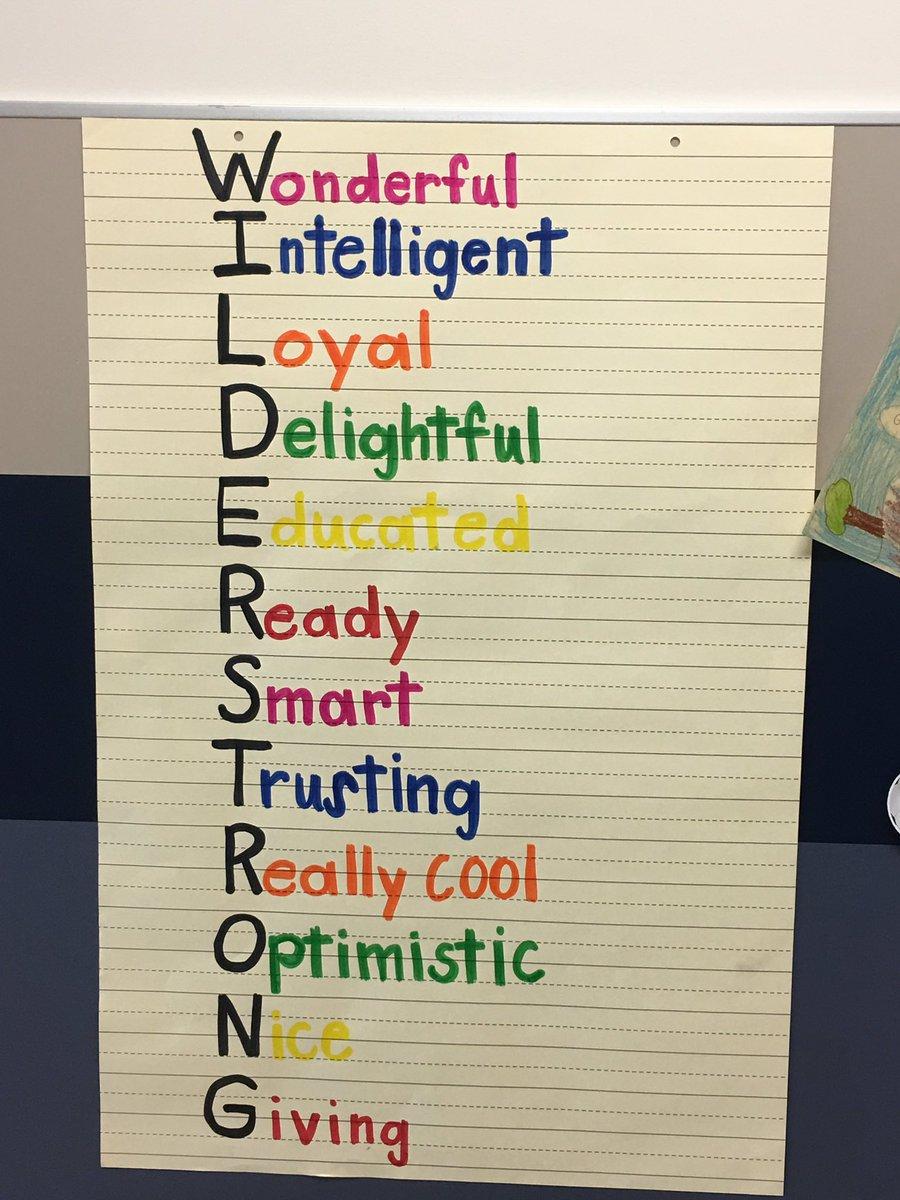 Wonderful
Intelligent
Loyal
Delightful
Educated
Ready
Smart
Trusting
Really cool
Optimistic
Nice
Giving